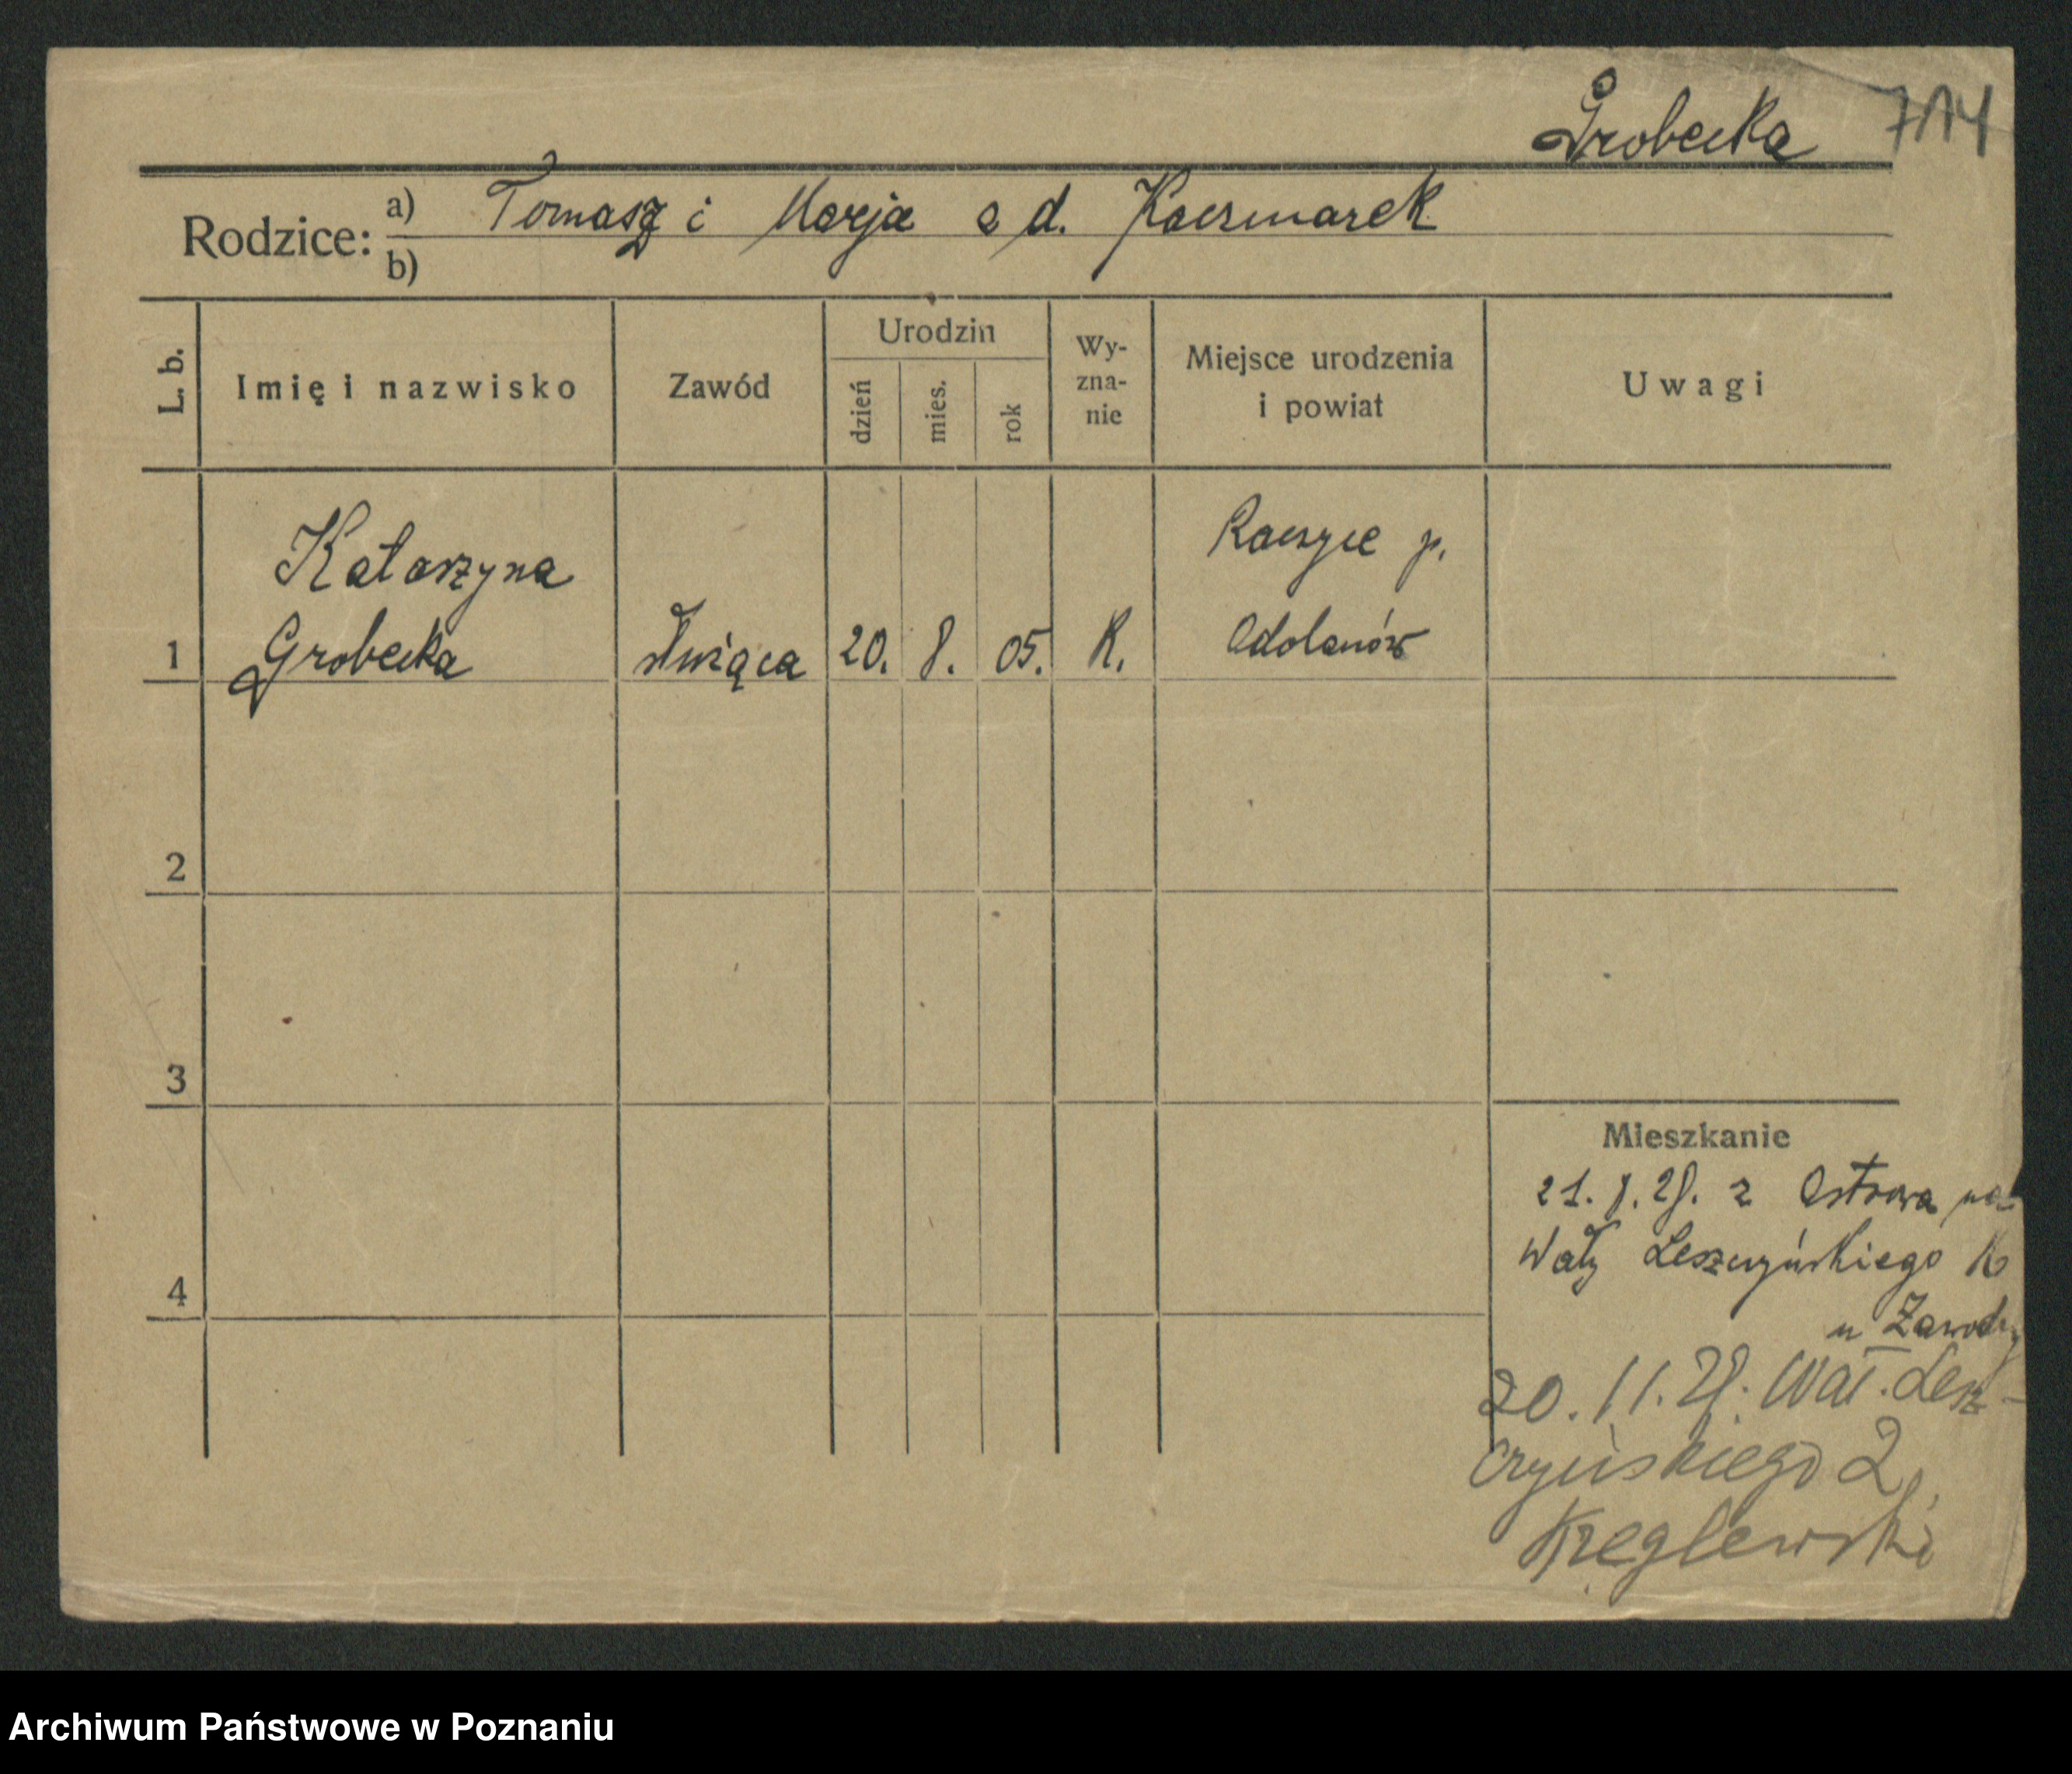 Grobecka 7114
Rodzice: a) Tomasz i Marja z d. Kaczmarek
b)
L. b. Imię i nazwisko Zawód Urodzin dzień mies. rok Wy-zna-nie Miejsce urodzenia i powiat Uwagi
Katarzyna Raczyce p.
1 Grobecka służąca 20. 8. 05. K. Odolanów
2
3
4
Mieszkanie
21. 8. 28. z Ostrowa na
Wały Leszczyńskiego
u
20. 11. 28. Wał. Lesz-
czyńskiego 2
Kręglewski
Archiwum Państwowe w Poznaniu